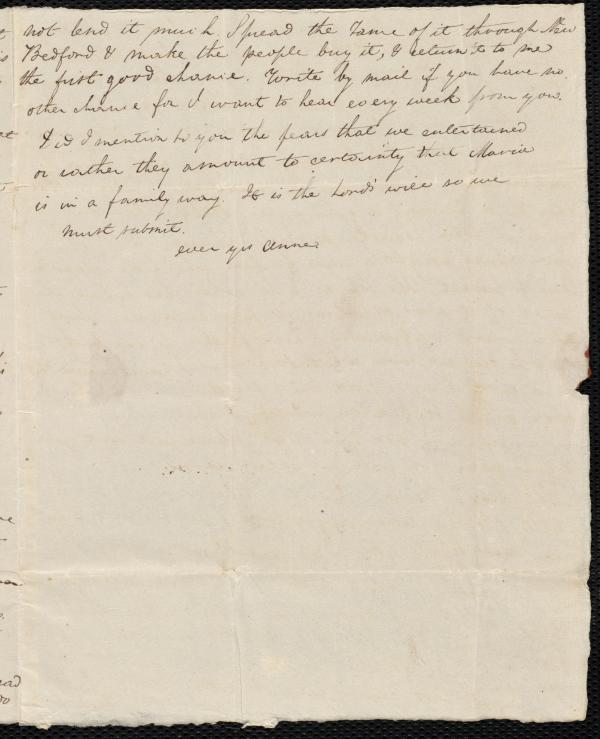 not lend it much. Spread the fame of it through New
Bedford & make the people buy it, & return it to me
the first good chance. Write by mail if you have no
other chance for I want to hear every week from you.
Did I mention to you the fears that we entertained
or rather they amount to certainty that Maria
is in a family way. It is the Lord's will so we
must submit.
ever yrs Anne